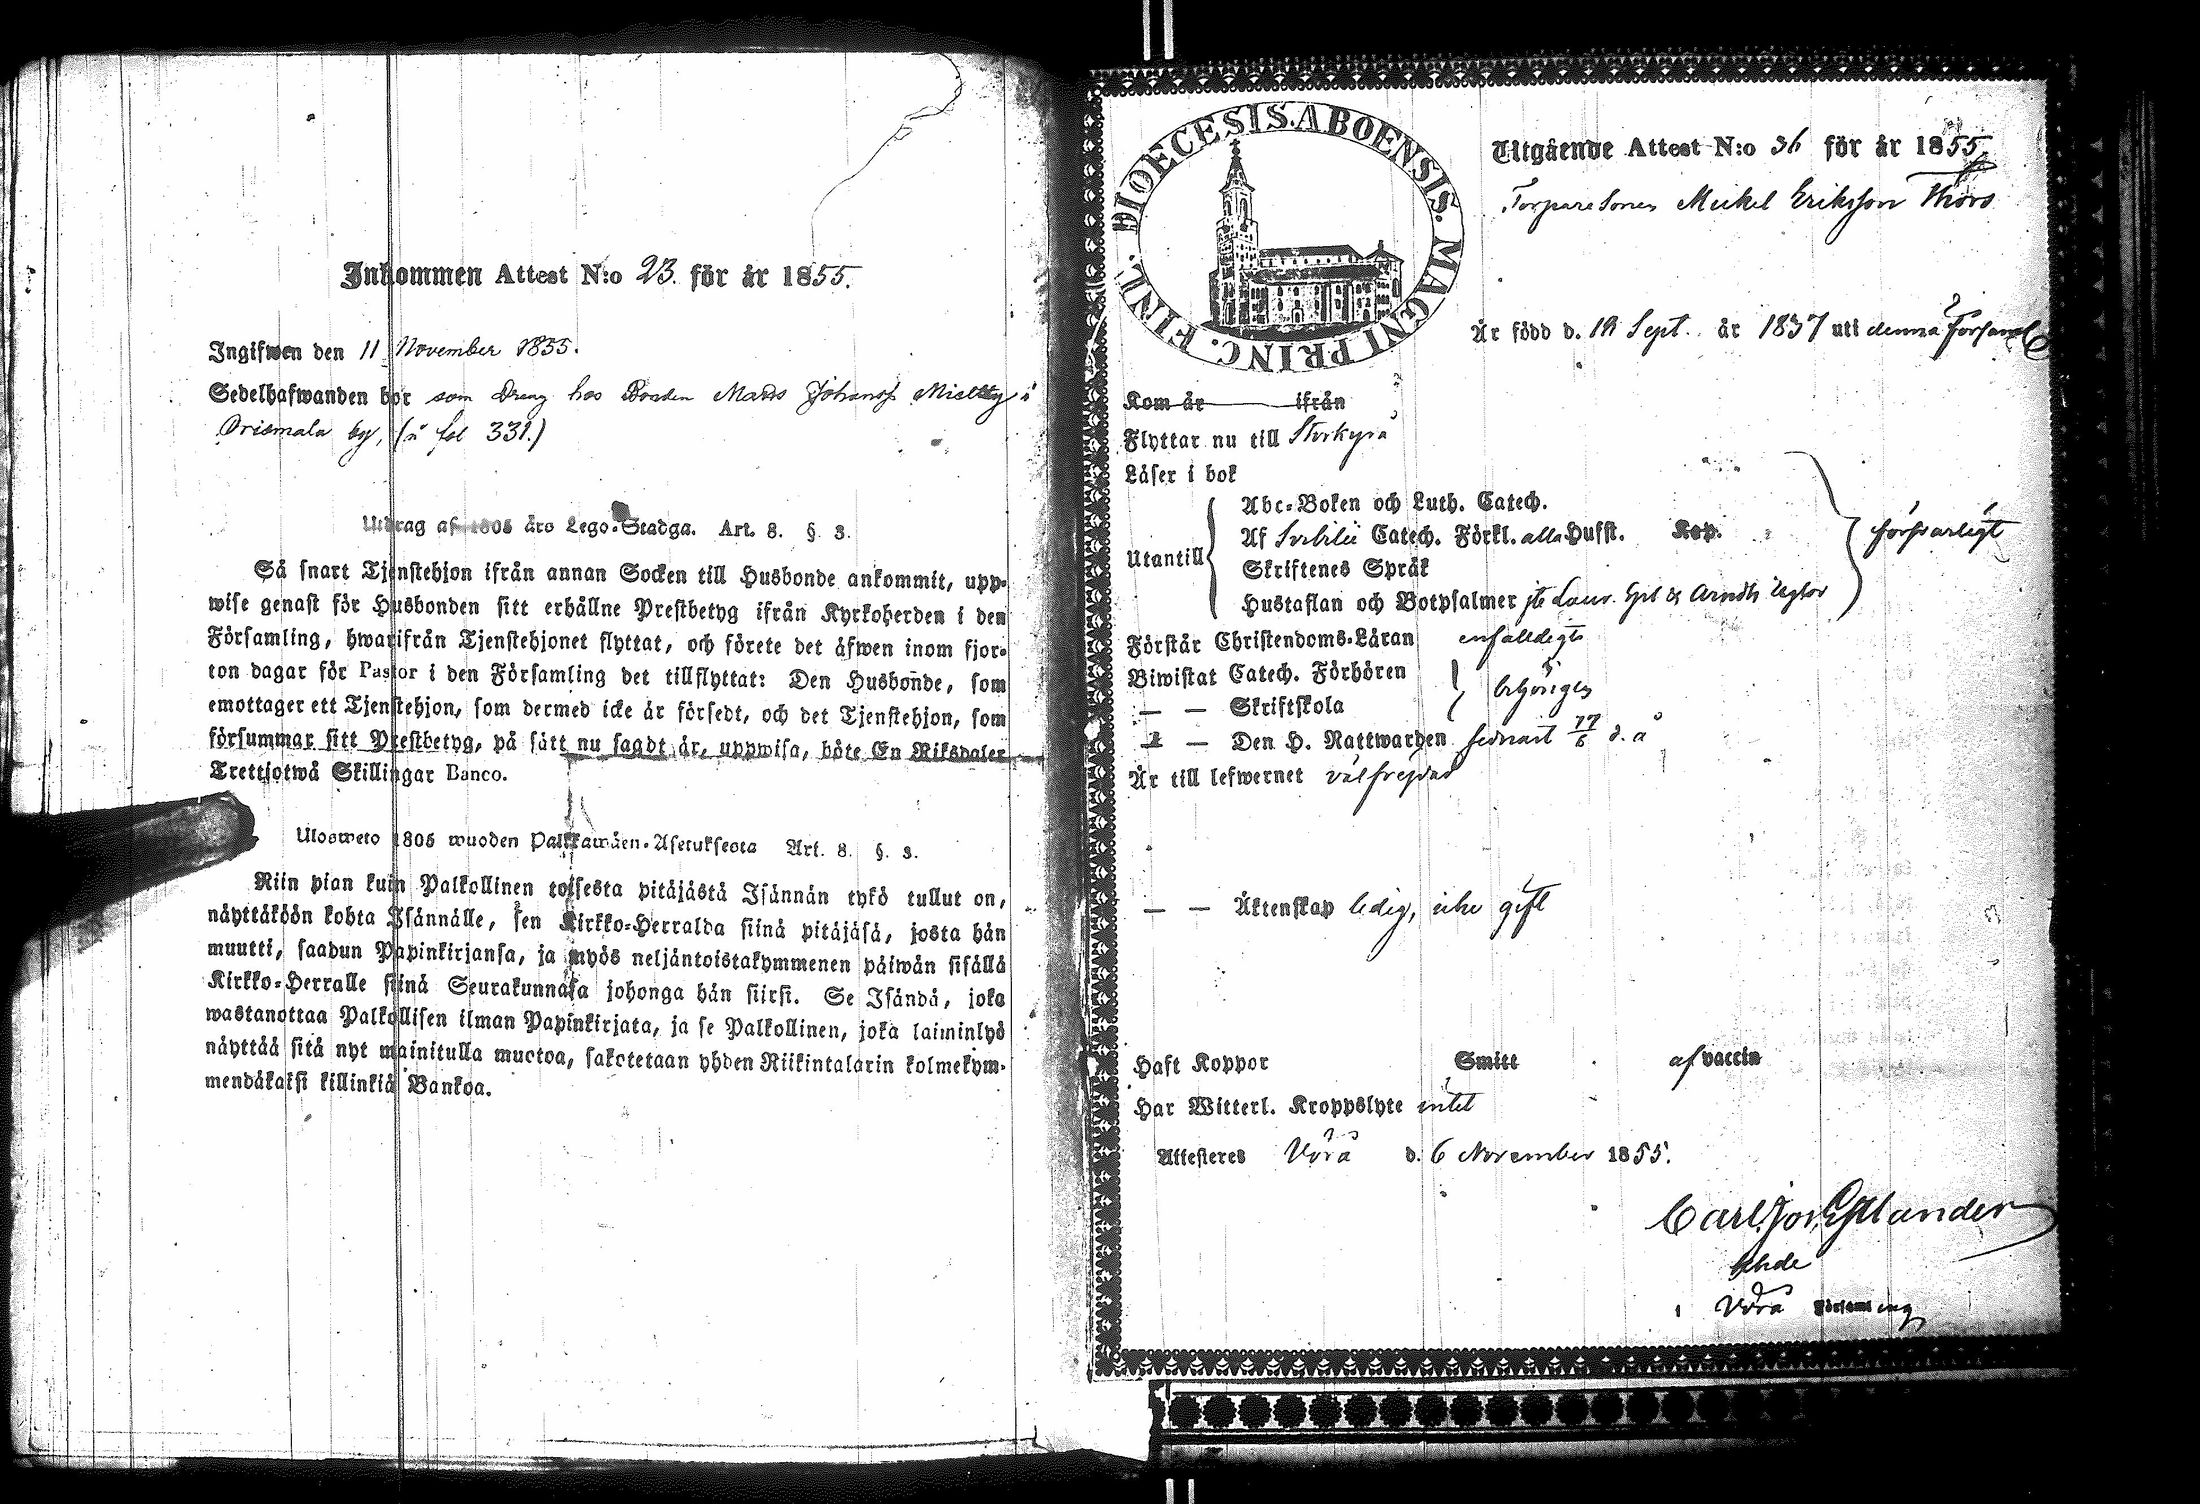 Inkommen Attest N:o 23. för år 1855.
Ingifwen den 11 November 1855.
Sedelhafwanden bor som Dreng hos Bonden Mats Johanss Mieltty i
Orismala by, (å fol 331.)
Utdrag af 1805 års Lego-Stadga. Art. 8. §. 3.
Så snart Tjenstehjon ifrån annan Socken till Husbonde ankommit, upp-
wise genast för Husbonden sitt erhållne Prestbetyg ifrån Kyrkoherden i den
Församling, hwarifrån Tjenstehjonet flyttat, och förete det äfwen inom fjor-
ton dagar för Pastor i den Församling det tillflyttat: Den Husbonde, som
emottager ett Tjenstehjon, som dermed icke är försedt, och det Tjenstehjon, som
försummar sitt Prestbetyg, på sätt nu sagdt är, uppwisa, böte En Riksdaler
Trettjotwå Skillingar Banco.
Ulosweto 1805 wuoden Palkkawäen-Asetuksesta Art. 8. §. 3.
Niin pian kuin Palkollinen toisesta pitäjästä Isännän tykö tullut on,
näyttäköön kohta Isännälle, sen Kirkko-Herralda siinä pitäjäsä, josta hän
muutti, saadun Papinkirjansa, ja myös neljäntoistakymmenen päiwän sisällä
Kirkko-Herralle siinä Seurakunnasa johonga hän siirsi. Se Isändä, joka
wastanottaa Palkollisen ilman Papinkirjata, ja se Palkollinen, joka laiminlyö
näyttää sitä nyt mainitulla muotoa, sakotetaan yhden Riikintalarin kolmekym-
mendäkaksi killinkiä Bankoa.
DIOECESIS. ABOENSIS. MAGNI PRINC. FINL.
Utgående Attest N:o 36 för år 1855
Torpare Sonen Mickel Eriksson Thors
Är född d. 18 Sept. år 1837 uti denna Församl
Kom år ifrån
Flyttar nu till Storkyro
Läser i bok
Utantill
Abc-Boken och Luth. Catech.
Af Svebilii Catech. Förkl. alla Hufst. Kap.
Skriftenes Språk
Hustaflan och Botpsalmer
försvarligt
Förstår Christendoms-Läran enfaldigt
Biwistat Catech. Förhören
— — Skriftskola
behörigen
— — Den H. Nattwarden senast 17/6 d. å
Är till lefwernet välfrejdad
— — Äktenskap ledig, icke gift
Haft Koppor Smitt af vaccin
Har Witterl. Kroppslyte intet
Attesteres Vörå d. 6 November 1855.
Carl Estlander
i Vörå Församling